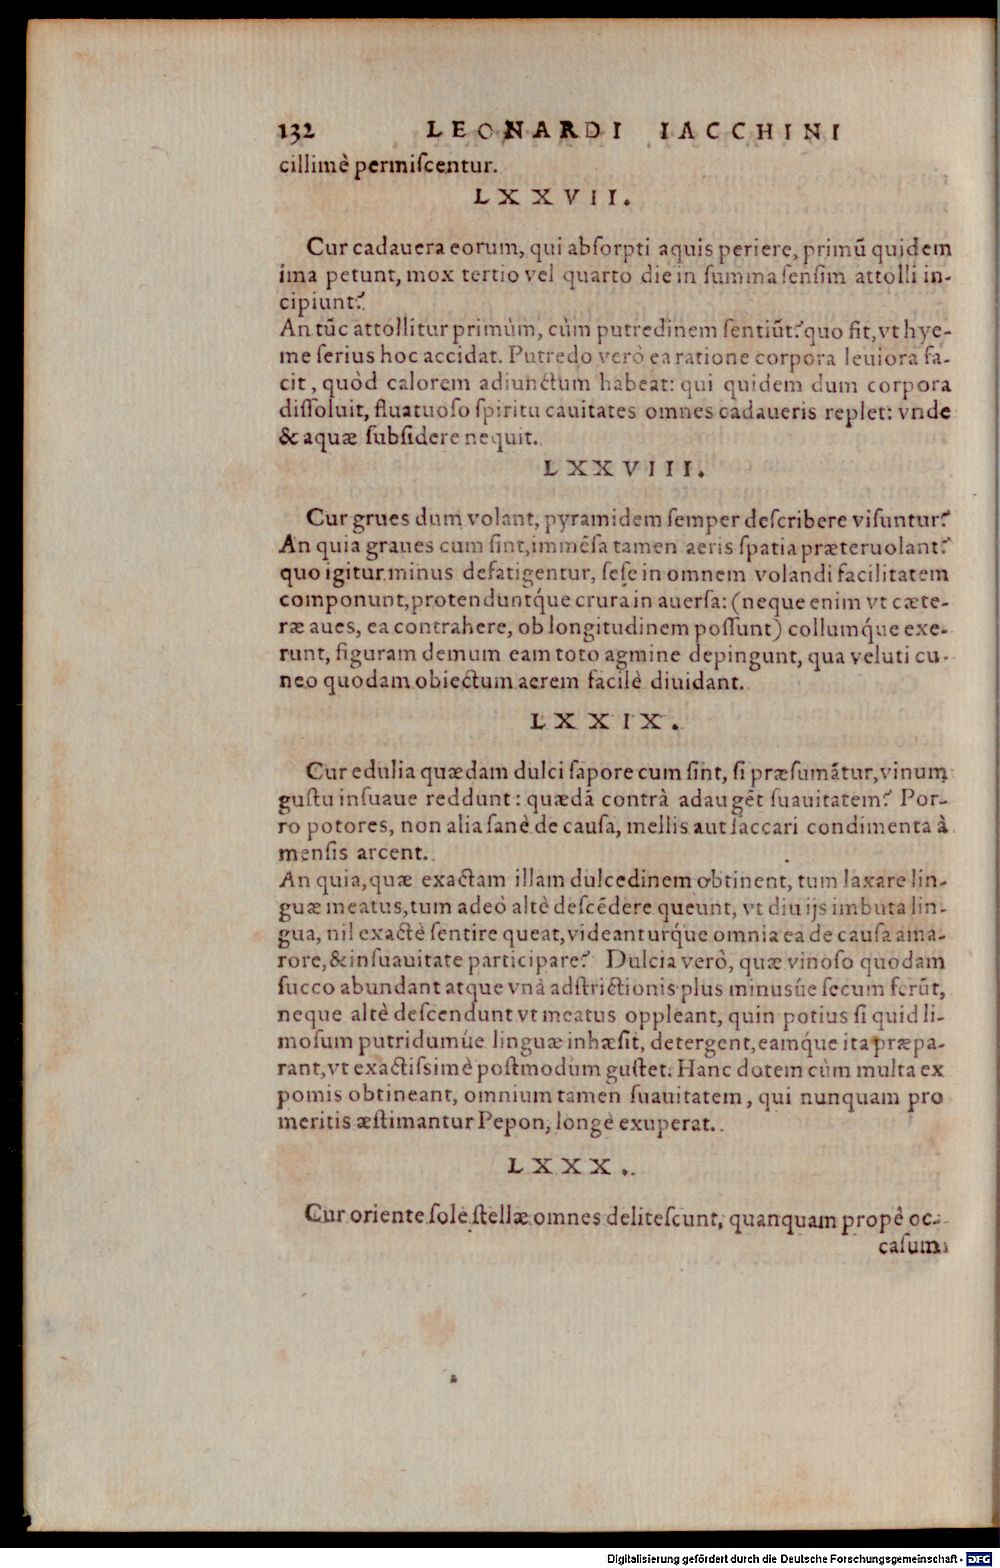 132 LEONARDI IACCHINI
cillimè permiſcentur.
LXXVII.
Cur cadauera eorum, qui abſorpti aquis periere, primũ quidem
ima petunt, mox tertio vel quarto die in ſumma ſenſim attolli in-
cipiunt?
An tũc attollitur primùm, cùm putredinem ſentiũt? quo fit, vt hye-
me ſerius hoc accidat. Putredo verò ea ratione corpora leuiora fa-
cit, quòd calorem adiunctum habeat: qui quidem dum corpora
diſſoluit, fluatuoſo ſpiritu cauitates omnes cadaueris replet: vnde
& aquæ ſubſidere nequit.
LXXVIII.
Cur grues dum volant, pyramidem ſemper deſcribere viſuntur?
An quia graues cum ſint, immẽſa tamen aeris ſpatia præteruolant?
quo igitur minus defatigentur, ſeſe in omnem volandi facilitatem
componunt, protenduntq́ue crura in auerſa: (neque enim vt cæte-
ræ aues, ea contrahere, ob longitudinem poſſunt) collumq́ue exe-
runt, figuram demum eam toto agmine depingunt, qua veluti cu-
neo quodam obiectum aerem facilè diuidant.
LXXIX.
Cur edulia quædam dulci ſapore cum ſint, ſi præſumãtur, vinum
guſtu inſuaue reddunt: quædã contrà adaugẽt ſuauitatem? Por-
ro potores, non alia ſanè de cauſa, mellis aut ſaccari condimenta à
menſis arcent.
An quia, quæ exactam illam dulcedinem obtinent, tum laxare lin-
guæ meatus, tum adeò altè deſcẽdere queunt, vt diu ijs imbuta lin-
gua, nil exactè ſentire queat, videanturq́ue omnia ea de cauſa ama-
rore, & inſuauitate participare? Dulcia verò, quæ vinoſo quodam
ſucco abundant atque vnà adſtrictionis plus minusúe ſecum ferũt,
neque altè deſcendunt vt meatus oppleant, quin potius ſi quid li-
moſum putridumúe linguæ inhæſit, detergent, eamq́ue ita præpa-
rant, vt exactiſsimè poſtmodum guſtet. Hanc dotem cùm multa ex
pomis obtineant, omnium tamen ſuauitatem, qui nunquam pro
meritis æſtimantur Pepon, longè exuperat.
LXXX.
Cur oriente ſole ſtellæ omnes deliteſcunt, quanquam propè oc-
caſum
Digitalisierung gefördert durch die Deutsche Forschungsgemeinschaft - DFG